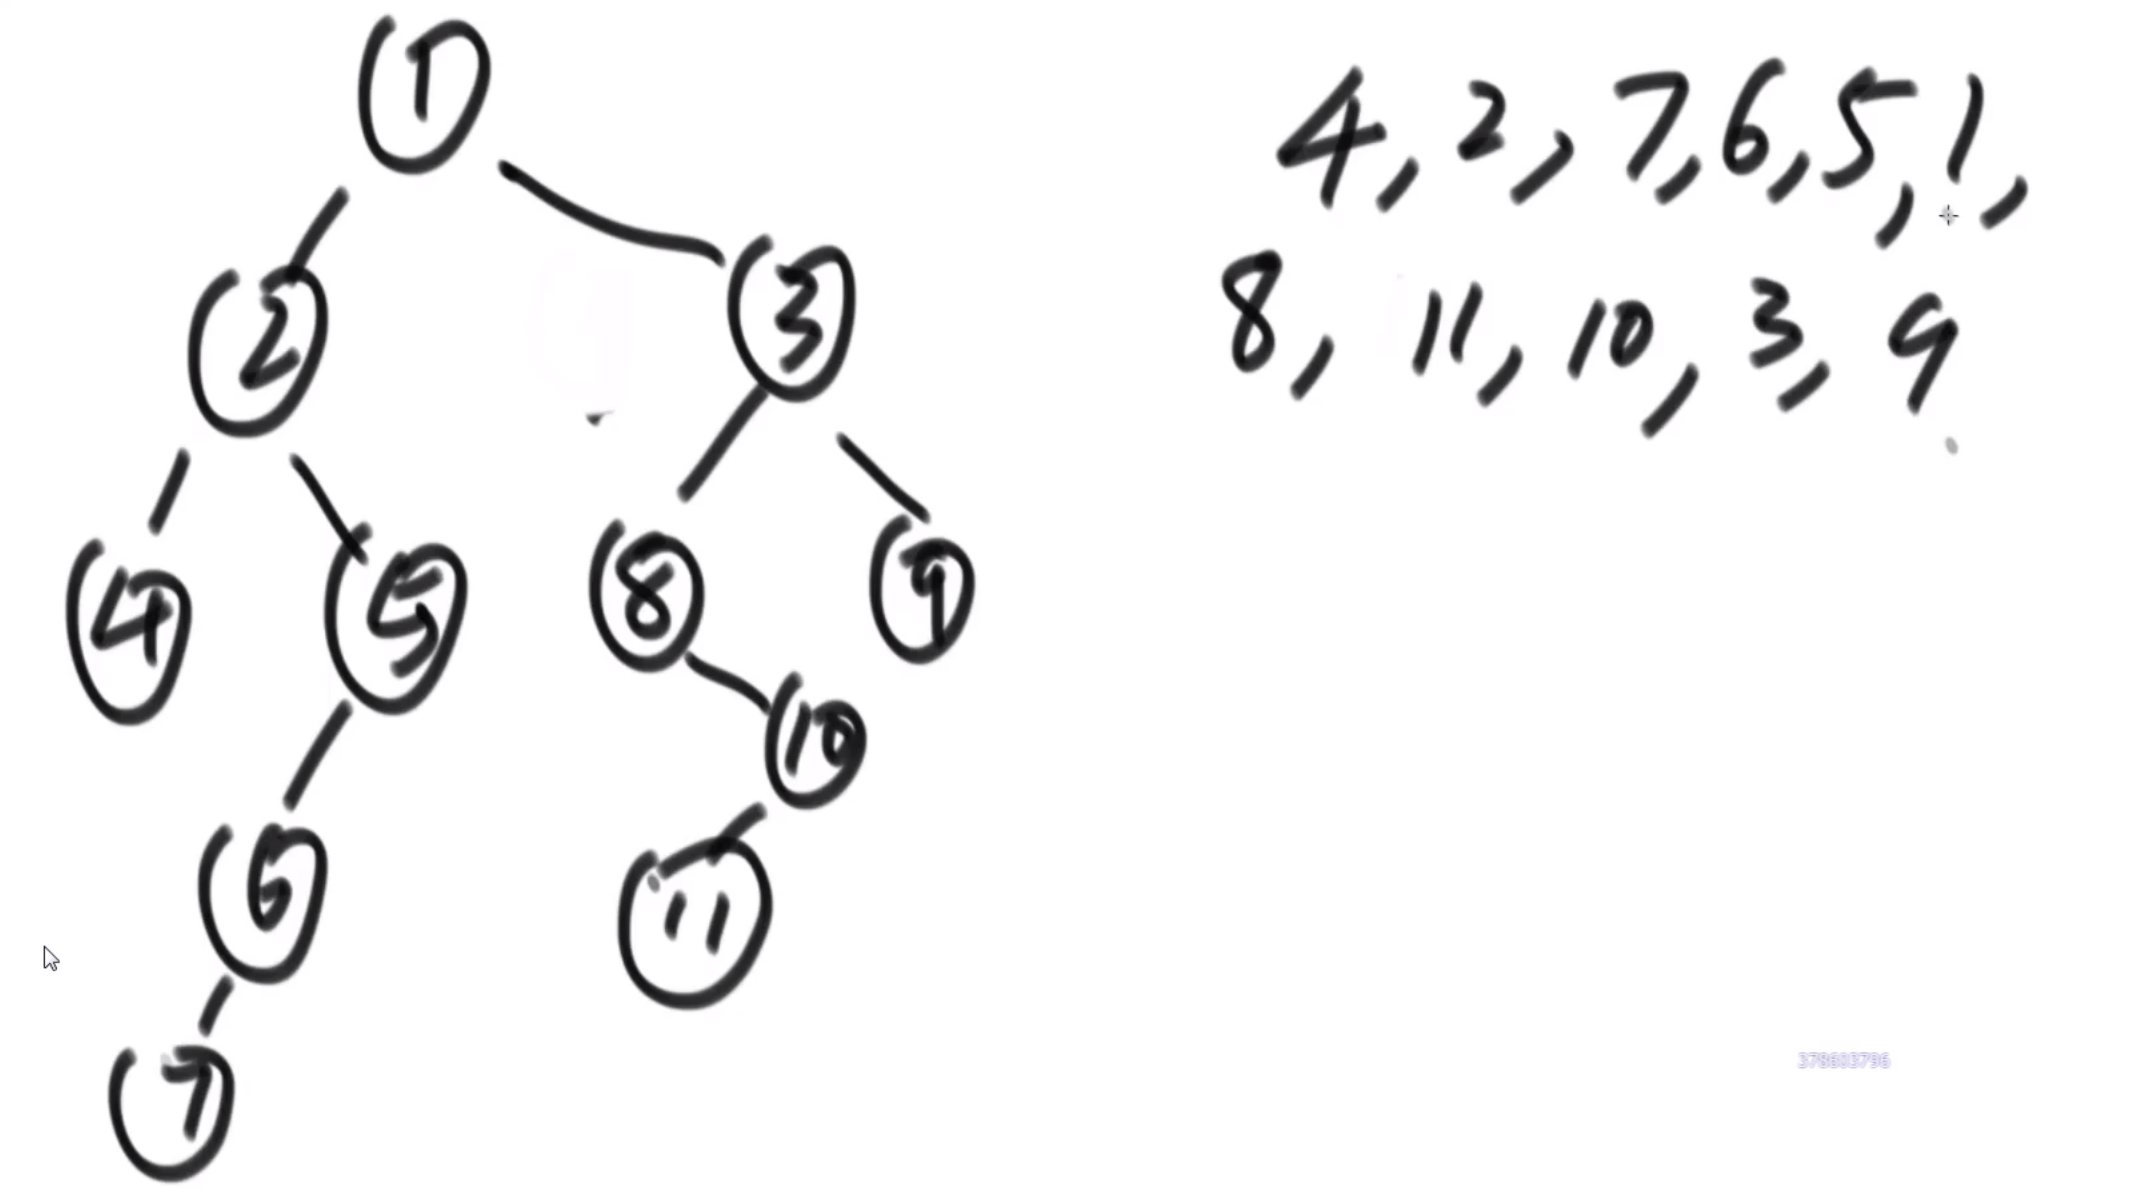 1
2 3
4 5 8 9
10
6 11
7
4, 2, 7, 6, 5, 1,
8, 11, 10, 3, 9
378603796